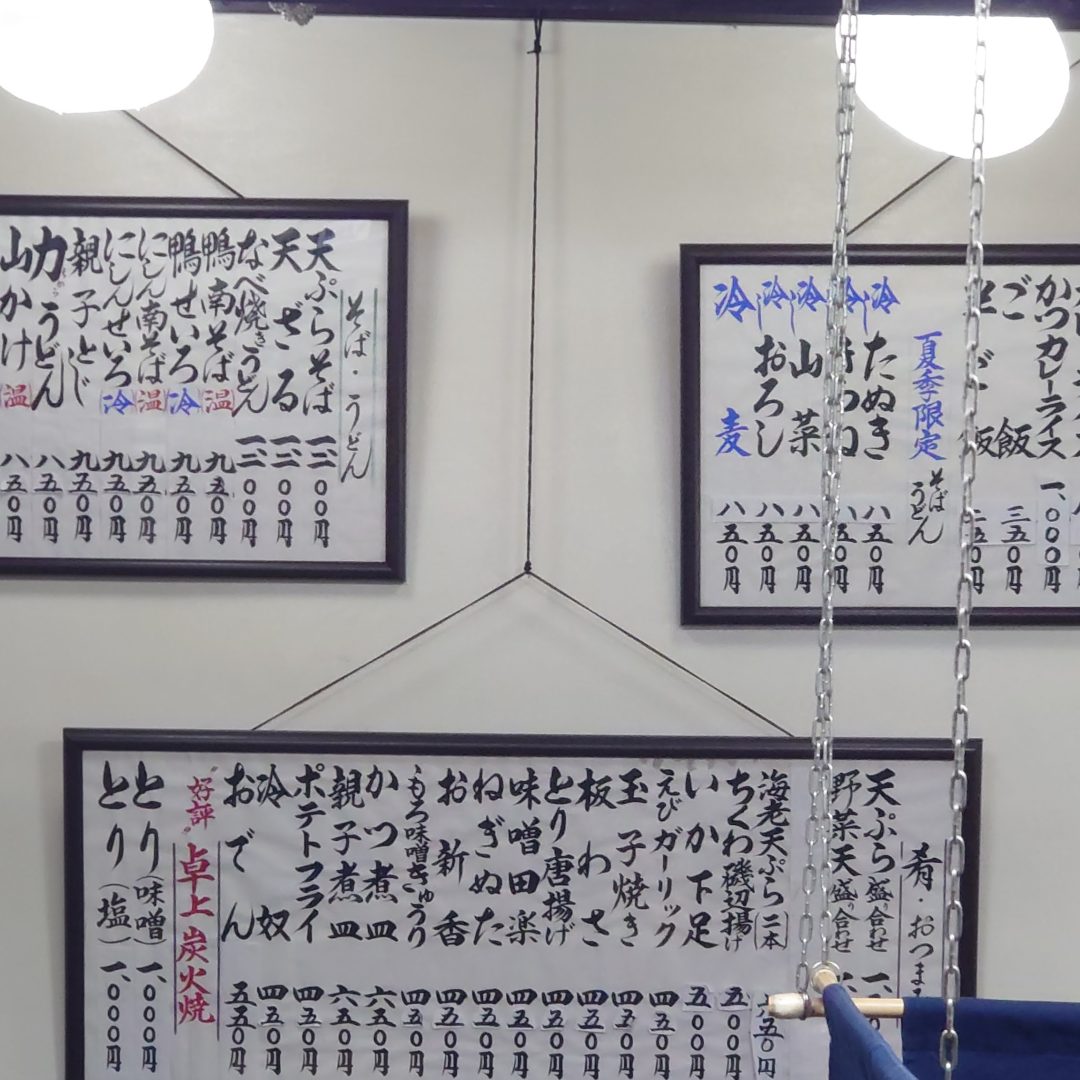 そば・うどん
天ぷらそば 一三〇〇円
天ざる 一三〇〇円
なべ焼きうどん 一三〇〇円
鴨南そば 温 九五〇円
鴨せいろ 冷 九五〇円
にしん南そば 温 九五〇円
にしんせいろ 冷 九五〇円
親子とじ 九五〇円
力うどん 八五〇円
山かけ 温 八五〇円
かつカレーライス 一、〇〇〇円
ご飯 三五〇円
夏季限定 そば うどん
冷したぬき 八五〇円
冷しきつね 八五〇円
冷し山菜 八五〇円
冷しおろし 八五〇円
冷麦 八五〇円
肴・おつま
天ぷら盛り合わせ
野菜天盛り合わせ
海老天ぷら(二本) 八五〇円
ちくわ磯辺揚げ 五〇〇円
いか下足 五〇〇円
えびガーリック 四五〇円
玉子焼き 四五〇円
板わさ 四五〇円
とり唐揚げ 四五〇円
味噌田楽 四五〇円
ねぎぬた 四五〇円
お新香 四五〇円
もろ味噌きゅうり 四五〇円
かつ煮皿 六五〇円
親子煮皿 六五〇円
ポテトフライ 四五〇円
冷奴 四五〇円
おでん 五五〇円
"好評" 卓上炭火焼
とり(味噌) 一、〇〇〇円
とり(塩) 一、〇〇〇円